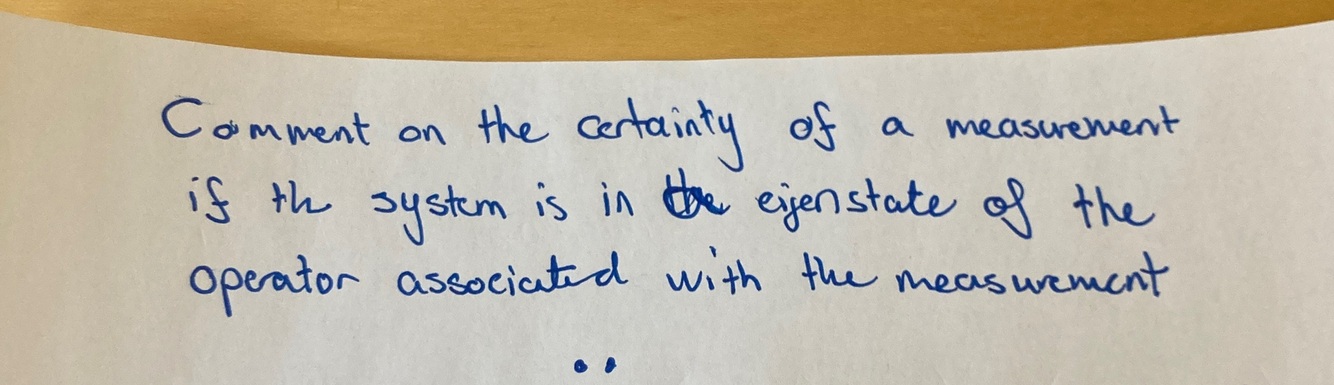 Comment on the certainty of a measurement
if the system is in the eigenstate of the
operator associated with the measurement